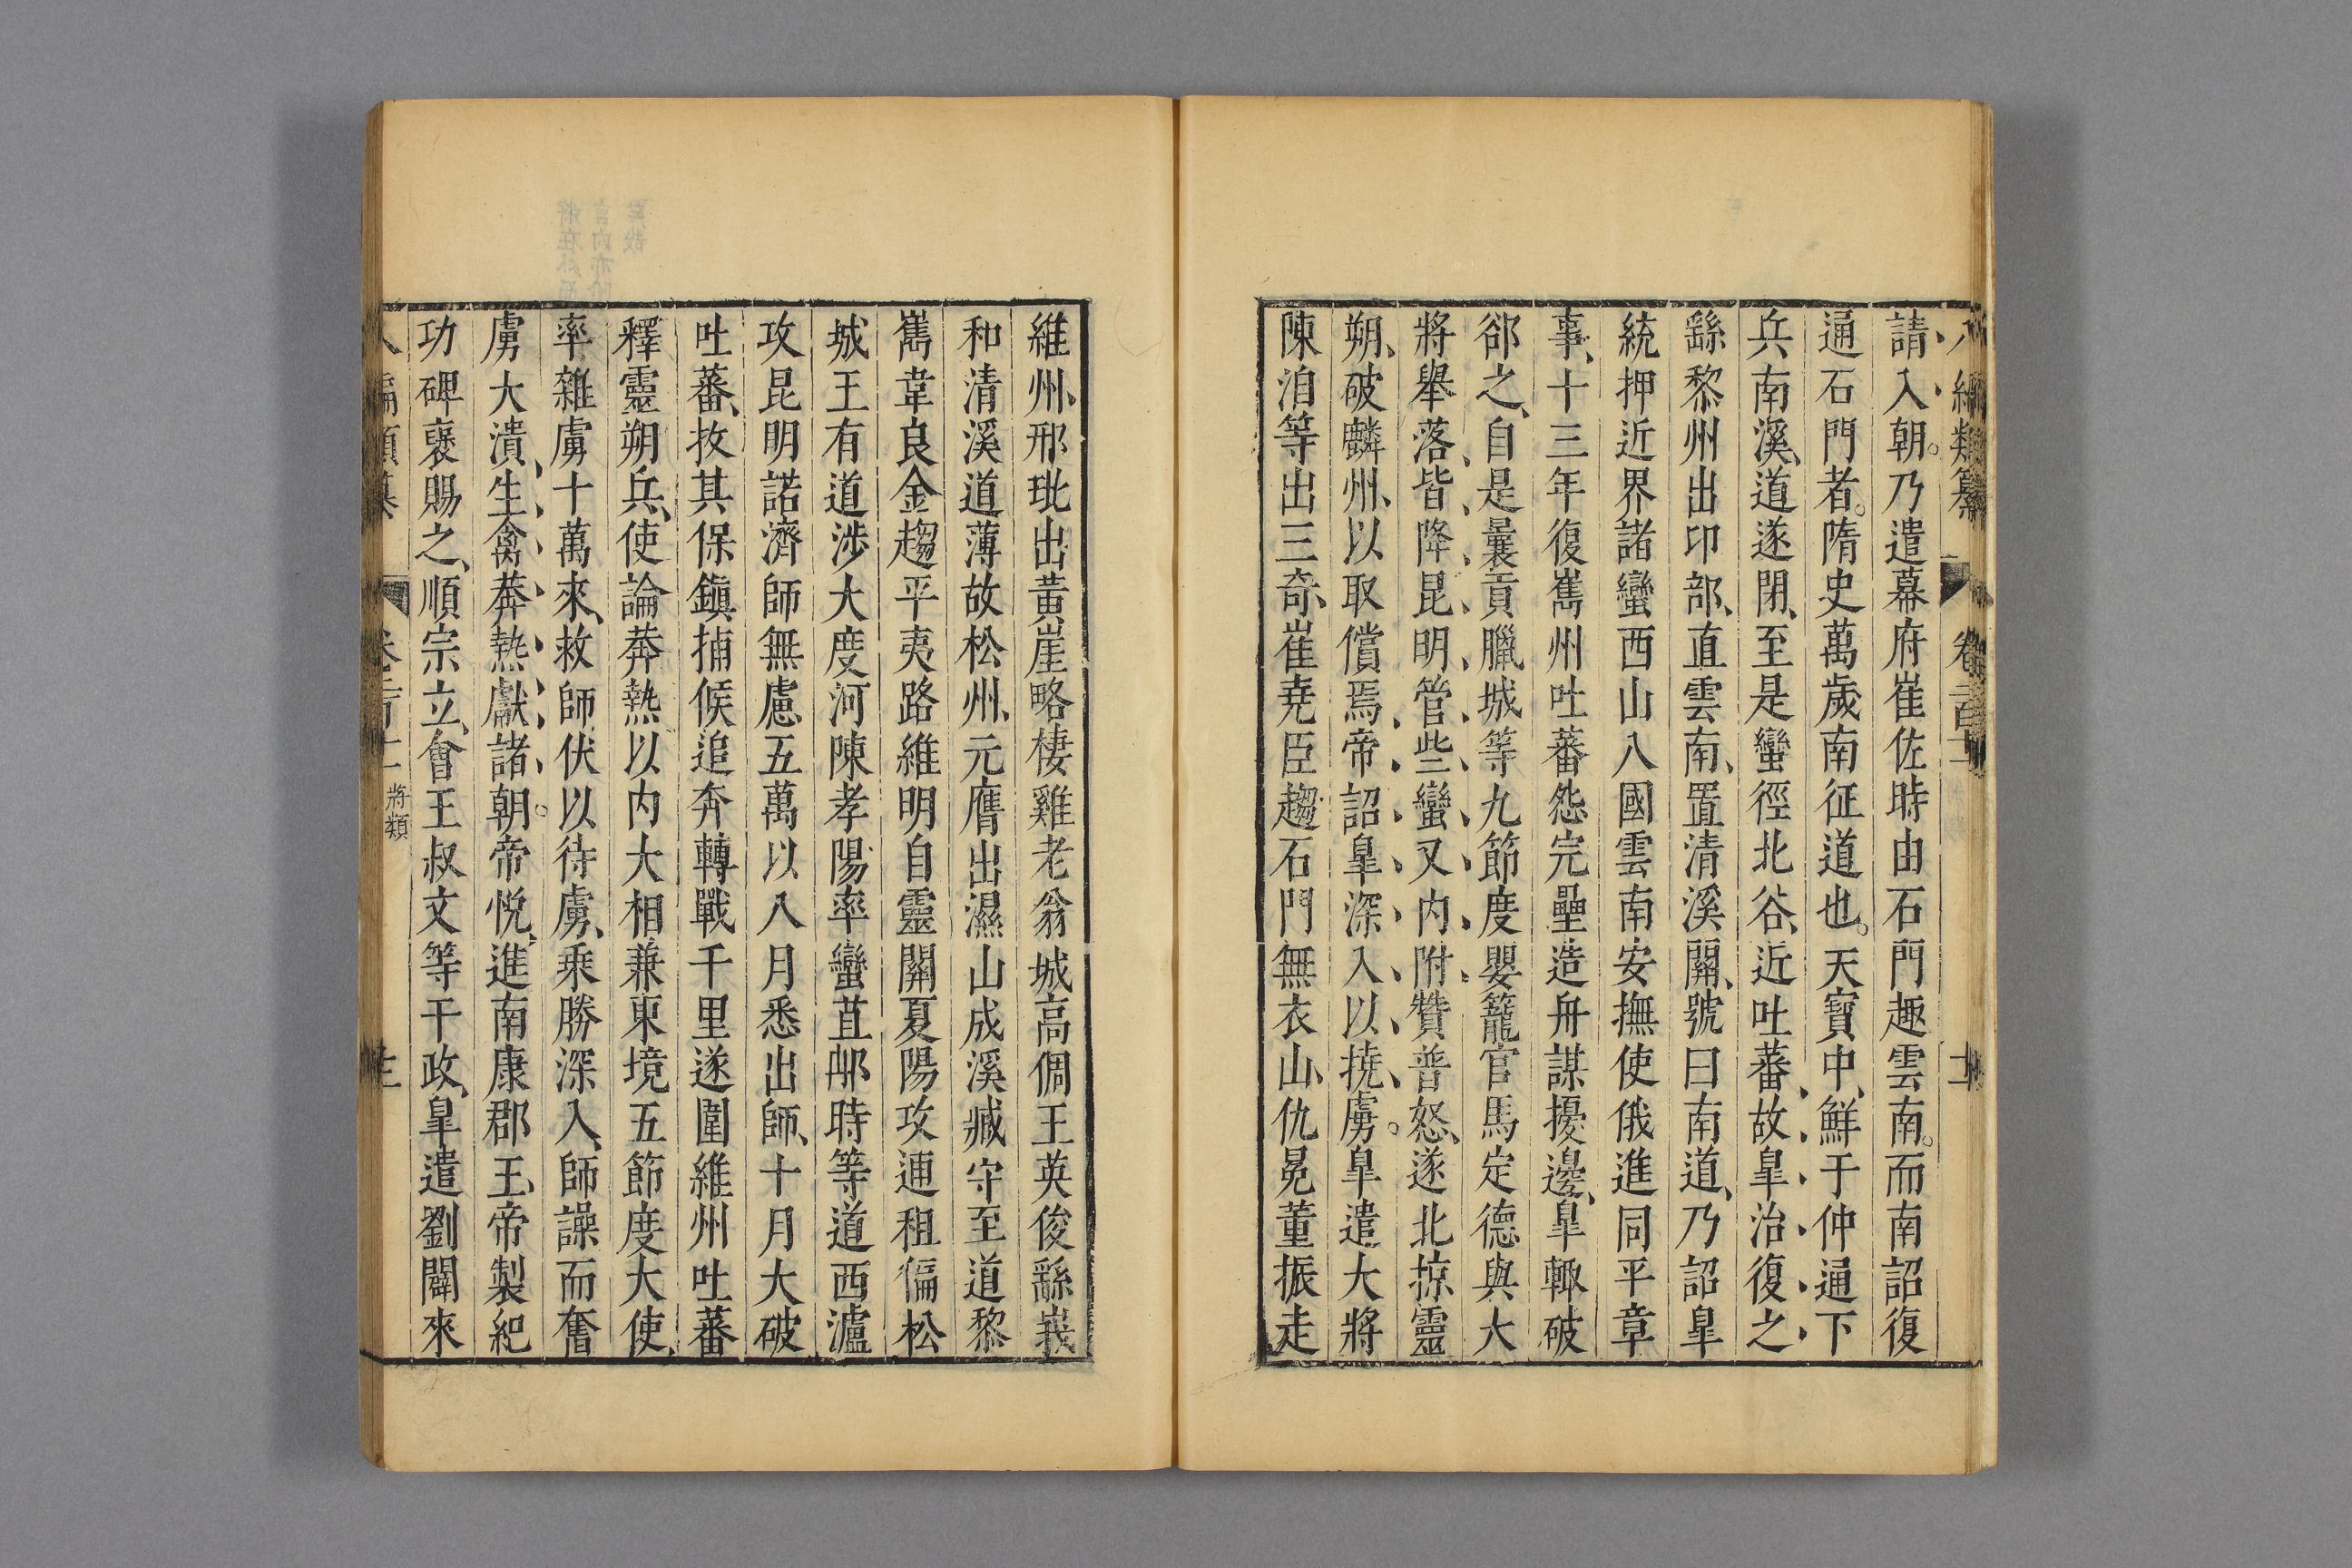 請入朝。乃遣幕府崔佐時由石門趣雲南。而南詔復
通石門者。隋史萬歲南征道也。天寶中、鮮于仲通下
兵南溪、道遂閉、至是蠻徑北谷、近吐蕃、故臯治復之、
繇黎州出邛部、直雲南、置清溪關、號曰南道、乃詔臯
統押近界諸蠻西山八國雲南安撫使俄進同平章
事、十三年復嶲州吐蕃怨完壘造舟謀擾邊、臯輙破
郤之、自是曩貢臘城等九節度嬰籠官馬定德與大
將舉落皆降昆明管些蠻又内附贊普怒、遂北掠靈
朔、破麟州、以取償焉、帝詔臯深入以撓虜。臯遣大將
陳洎等出三奇、崔堯臣趨石門無衣山、仇冕董振走
維州、邢玼出黄崖略棲雞老翁城高倜王英俊繇峩
和清溪道薄故松州、元膺出濕山成溪臧守至道黎
嶲韋良金趨平夷路維明自靈關夏陽攻逋租偏松
城王有道涉大度河陳孝陽率蠻苴邮時等道西瀘
攻昆明諾濟師無慮五萬以八月悉出師、十月大破
吐蕃、抜其保鎮捕候追奔轉戰千里遂圍維州吐蕃
釋靈朔兵、使論莽熱以内大相兼東境五節度大使、
率雜虜十萬來、救師伏以待虜、乘勝深入、師譟而奮
虜大潰、生禽莽熱獻諸朝。帝悦、進南康郡王、帝製紀
功碑褒賜之、順宗立、會王叔文等干政、臯遣劉闢來
卷二百十二 將類